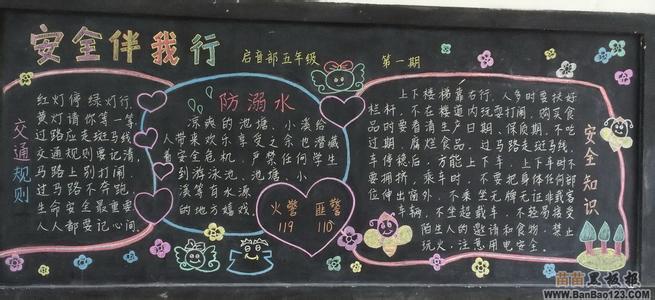 安全伴我行
启音部五年级
第一期
交通规则
红灯停 绿灯行,
黄灯请你等一等,
过路应走斑马线
交通规则要记清,
马路上别打闹,
过马路不奔跑,
生命安全最重要
人人都要记心间。
防溺水
凉爽的池塘、小溪给
人带来欢乐享受之余也潜藏
着安全危机,严禁任何学生
到游泳池、池塘、小
溪等有水源
的地方嬉戏。
火警
119
匪警
110
安全知识
上下楼梯靠右行,人多时要扶好
栏杆,不在楼道内玩耍打闹。购买食
品时要看清生产日期、保质期,不吃
过期、腐烂食品。过马路走斑马线。
车停稳后,方能上下车,上下车时不
要拥挤,乘车时,不要把身体任何部
位伸出窗外,不乘坐无牌无证非载客
车辆,不坐超载车,不轻易接受
陌生人的邀请和食物,禁止
玩火,注意用电安全。
苗苗黑板报
www.BanBao123.com